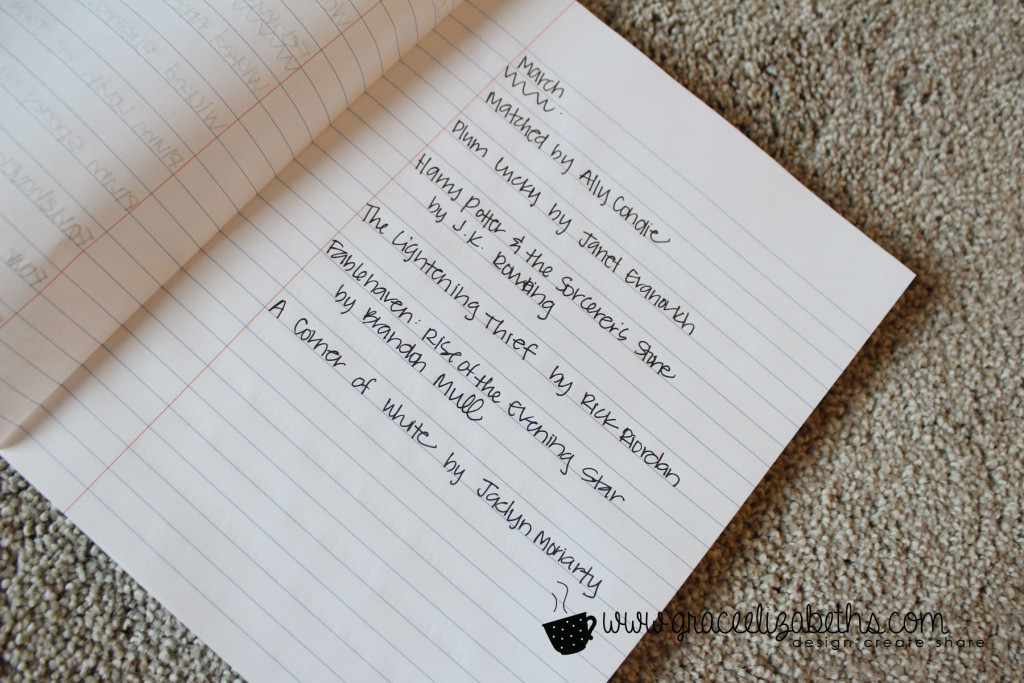 March
Matched by Ally Condie
Plum Lucky by Janet Evanovich
Harry Potter & the Sorcerer's Stone
by J.K. Rowling
The Lightening Thief by Rick Riordan
Fablehaven: Rise of the Evening Star
by Brandon Mull
A Corner of White by Jaclyn Moriarty
www.graceelizabeths.com
design create share